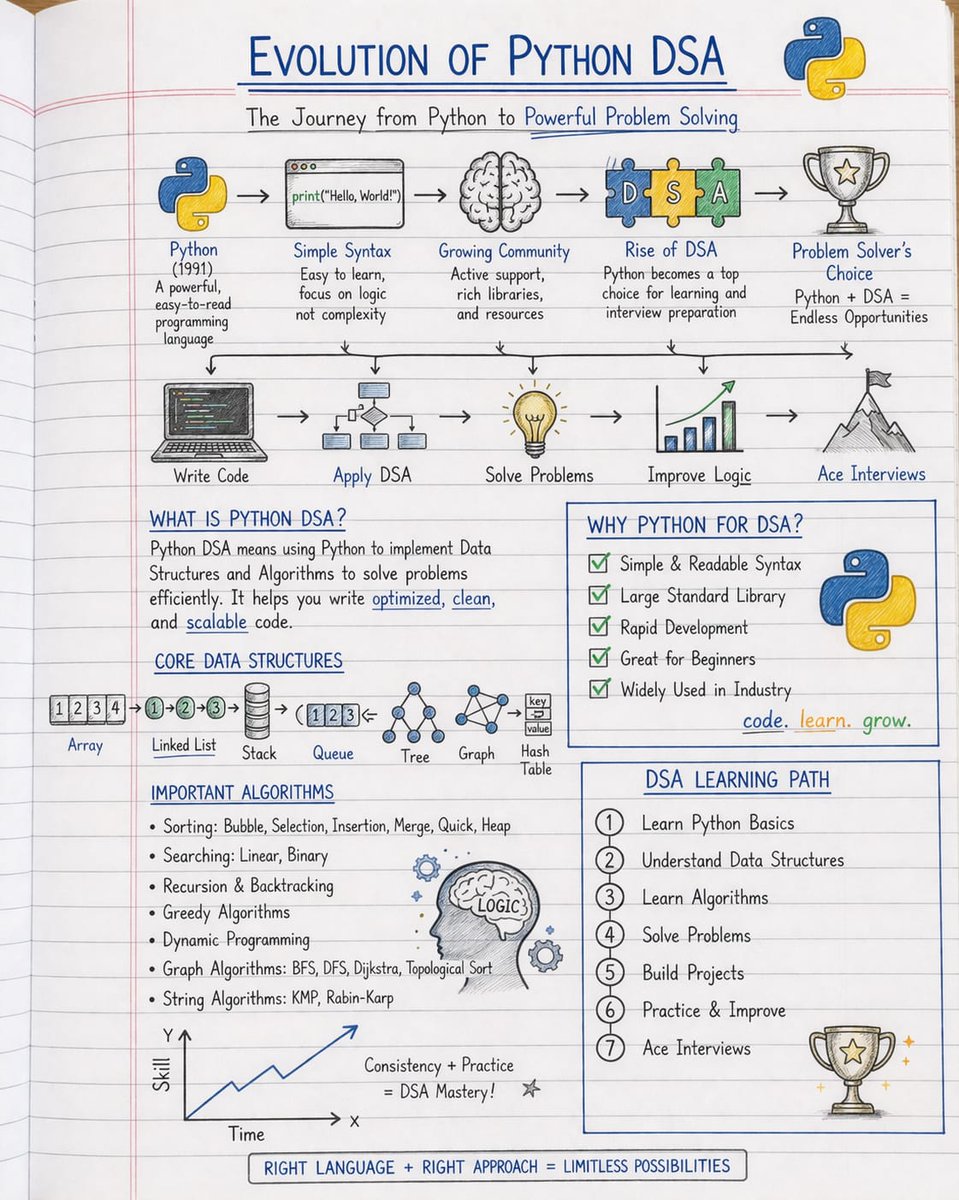 EVOLUTION OF PYTHON DSA
The Journey from Python to Powerful Problem Solving
print("Hello, World!")
D S A
Python
(1991)
A powerful,
easy-to-read
programming
language
Simple Syntax
Easy to learn,
focus on logic
not complexity
Growing Community
Active support,
rich libraries,
and resources
Rise of DSA
Python becomes a top
choice for learning and
interview preparation
Problem Solver's
Choice
Python + DSA =
Endless Opportunities
Write Code
Apply DSA
Solve Problems
Improve Logic
Ace Interviews
WHAT IS PYTHON DSA?
Python DSA means using Python to implement Data
Structures and Algorithms to solve problems
efficiently. It helps you write optimized, clean,
and scalable code.
WHY PYTHON FOR DSA?
Simple & Readable Syntax
Large Standard Library
Rapid Development
Great for Beginners
Widely Used in Industry
code. learn. grow.
CORE DATA STRUCTURES
1 2 3 4
1 2 3
1 2 3
key
value
Array
Linked List
Stack
Queue
Tree
Graph
Hash
Table
IMPORTANT ALGORITHMS
• Sorting: Bubble, Selection, Insertion, Merge, Quick, Heap
• Searching: Linear, Binary
• Recursion & Backtracking
• Greedy Algorithms
• Dynamic Programming
• Graph Algorithms: BFS, DFS, Dijkstra, Topological Sort
• String Algorithms: KMP, Rabin-Karp
LOGIC
DSA LEARNING PATH
1 Learn Python Basics
2 Understand Data Structures
3 Learn Algorithms
4 Solve Problems
5 Build Projects
6 Practice & Improve
7 Ace Interviews
Y
Skill
X
Time
Consistency + Practice
= DSA Mastery!
RIGHT LANGUAGE + RIGHT APPROACH = LIMITLESS POSSIBILITIES